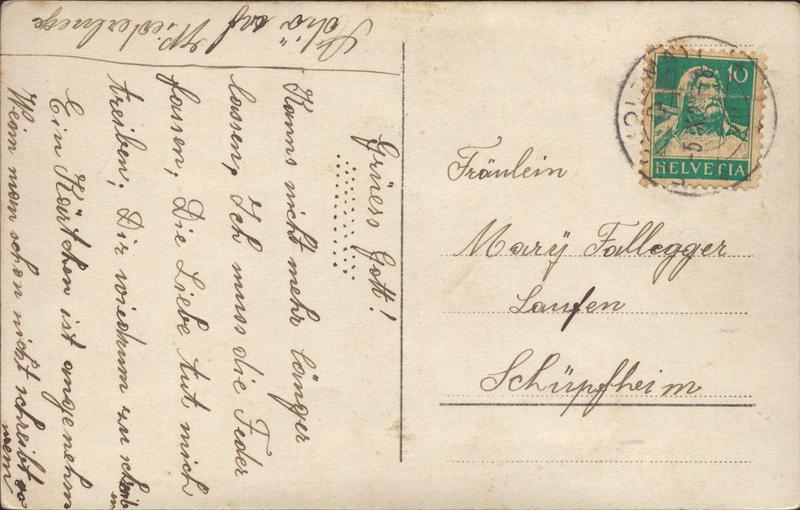 Grüess Gott!
Kanns nicht mehr länger
lassen, Ich muss die Feder
fassen, Die Liebe tut mich
treiben, Dir wiedrum zu schreiben
Ein Kärtchen ist angenehm
Wenn man schon nicht schreibt vo wem
auf Wiederluege
Fräulein
Marÿ Fallegger
Laufen
Schüpfheim
10
HELVETIA